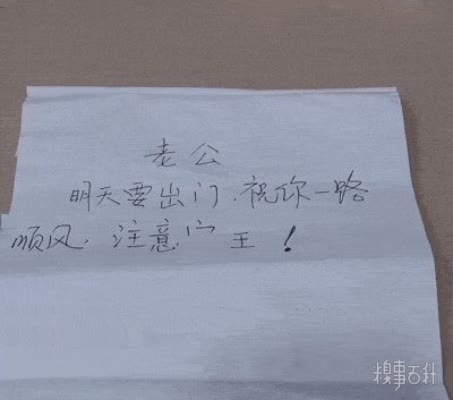 老公
明天要出门.祝你一路
顺风.注意宀王!
糗事百科